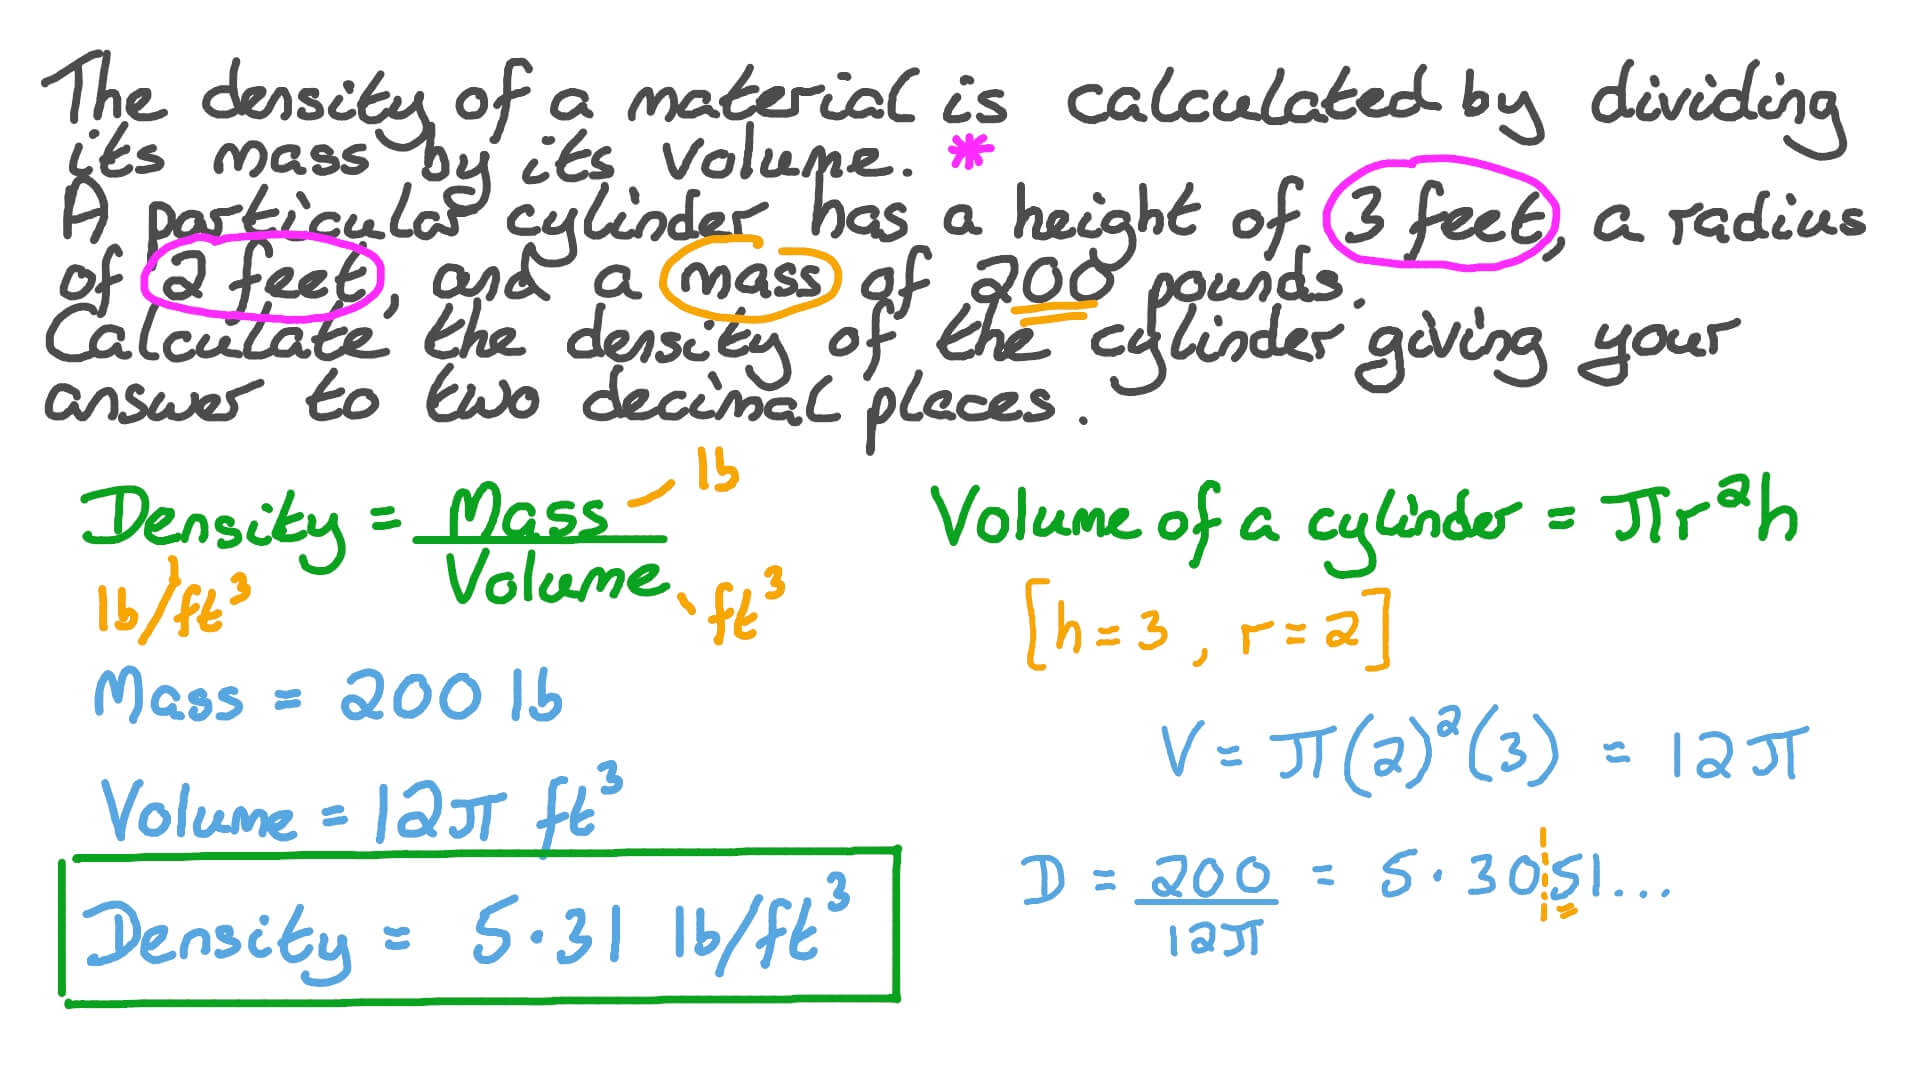 The density of a material is calculated by dividing
its mass by its volume. *
A particular cylinder has a height of 3 feet, a radius
of 2 feet, and a mass of 200 pounds.
Calculate the density of the cylinder giving your
answer to two decimal places.
Density = Mass / Volume
lb
ft³
lb/ft³
Mass = 200 lb
Volume = 12π ft³
Density = 5.31 lb/ft³
Volume of a cylinder = πr²h
[h = 3, r = 2]
V = π(2)²(3) = 12π
D = 200 / 12π = 5.3051...